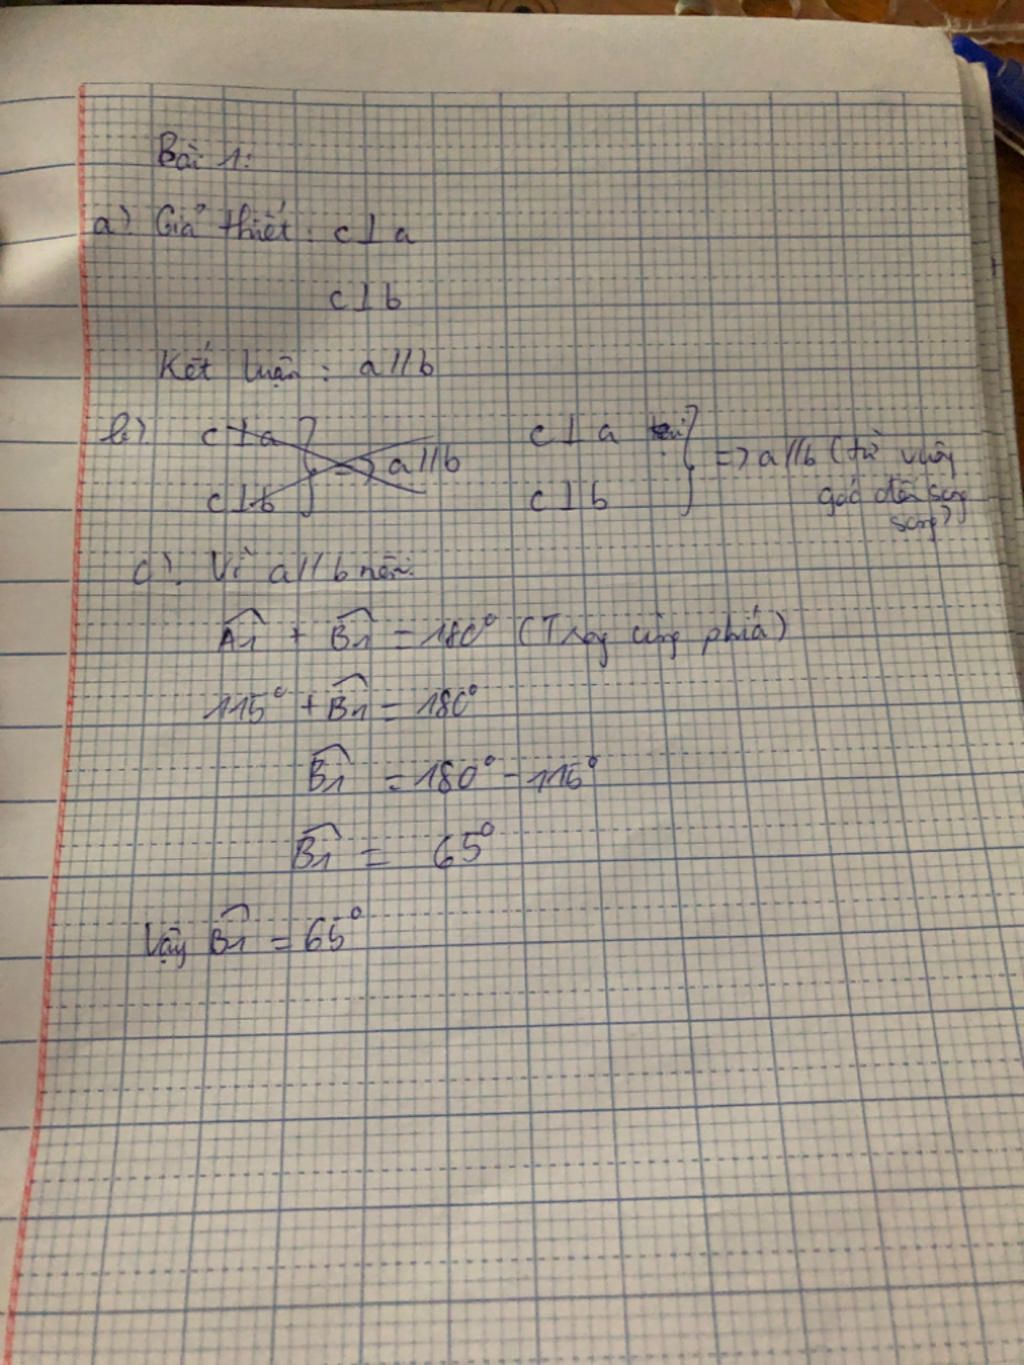 Bài 1:
a) Giả thiết: c ⊥ a
c ⊥ b
Kết luận: a // b
b) c ⊥ a
c ⊥ b } => a // b
c ⊥ a
c ⊥ b } => a // b (từ vuông
góc đến song
song)
c). Vì a // b nên:
Â1 + B̂1 = 180° (Trong cùng phía)
115° + B̂1 = 180°
B̂1 = 180° - 115°
B̂1 = 65°
Vậy B̂1 = 65°